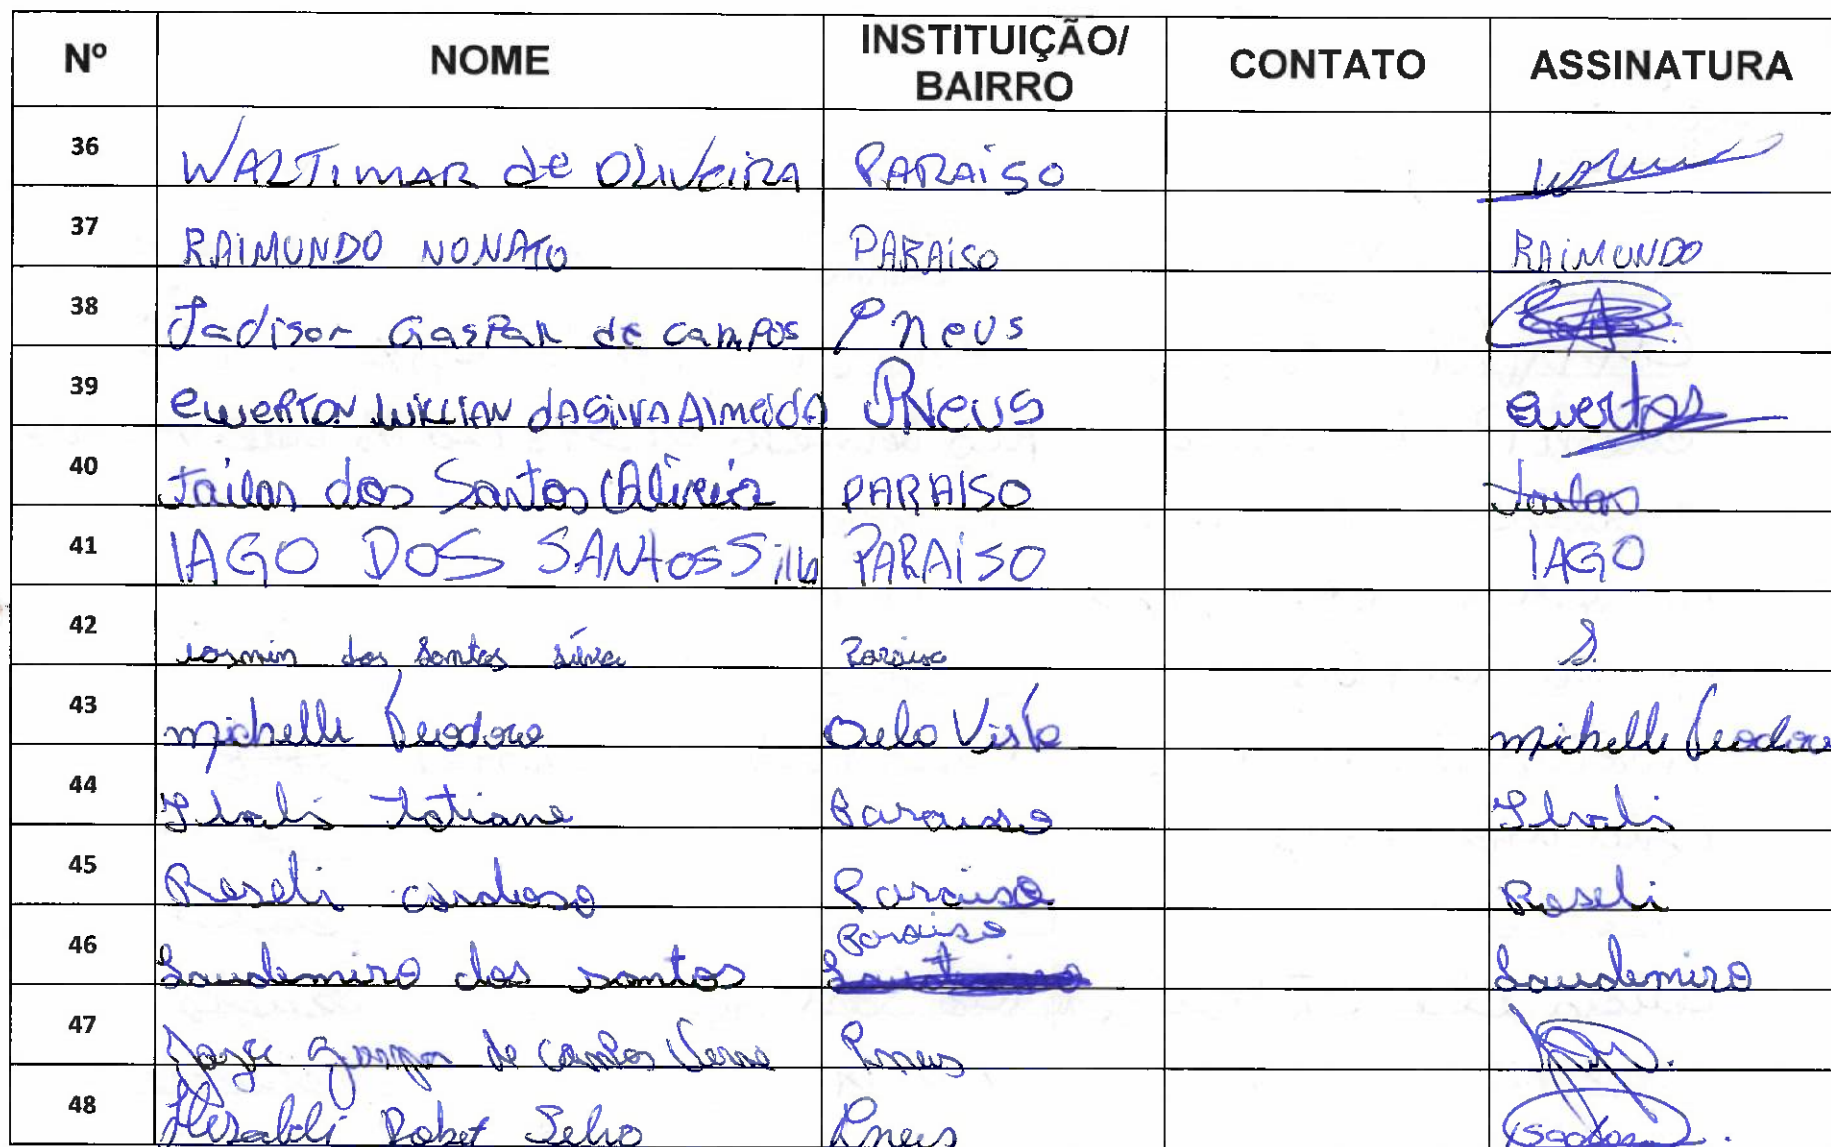 Nº NOME INSTITUIÇÃO/ BAIRRO CONTATO ASSINATURA
36 WALTIMAR de OLIVEIRA PARAÍSO
37 RAIMUNDO NONATO PARAÍSO RAIMUNDO
38 Jadison Gaspar de campos Pneus
39 ewerton willian dasilva Almeida PNeus ewerton
40 Jailan dos Santos Oliveira PARAISO Jailan
41 IAGO DOS SANtos Silv PARAÍSO IAGO
42 iasmin dos Santos silva Paraiso S.
43 michelle Teodoro Belo Vista michelle Teodoro
44 Tatiane Paraiso
45 Roseli cardoso Paraiso Roseli
46 Laudemiro dos santos Paraiso Laudemiro
47 Jorge de campos Pneus
48 Pneus